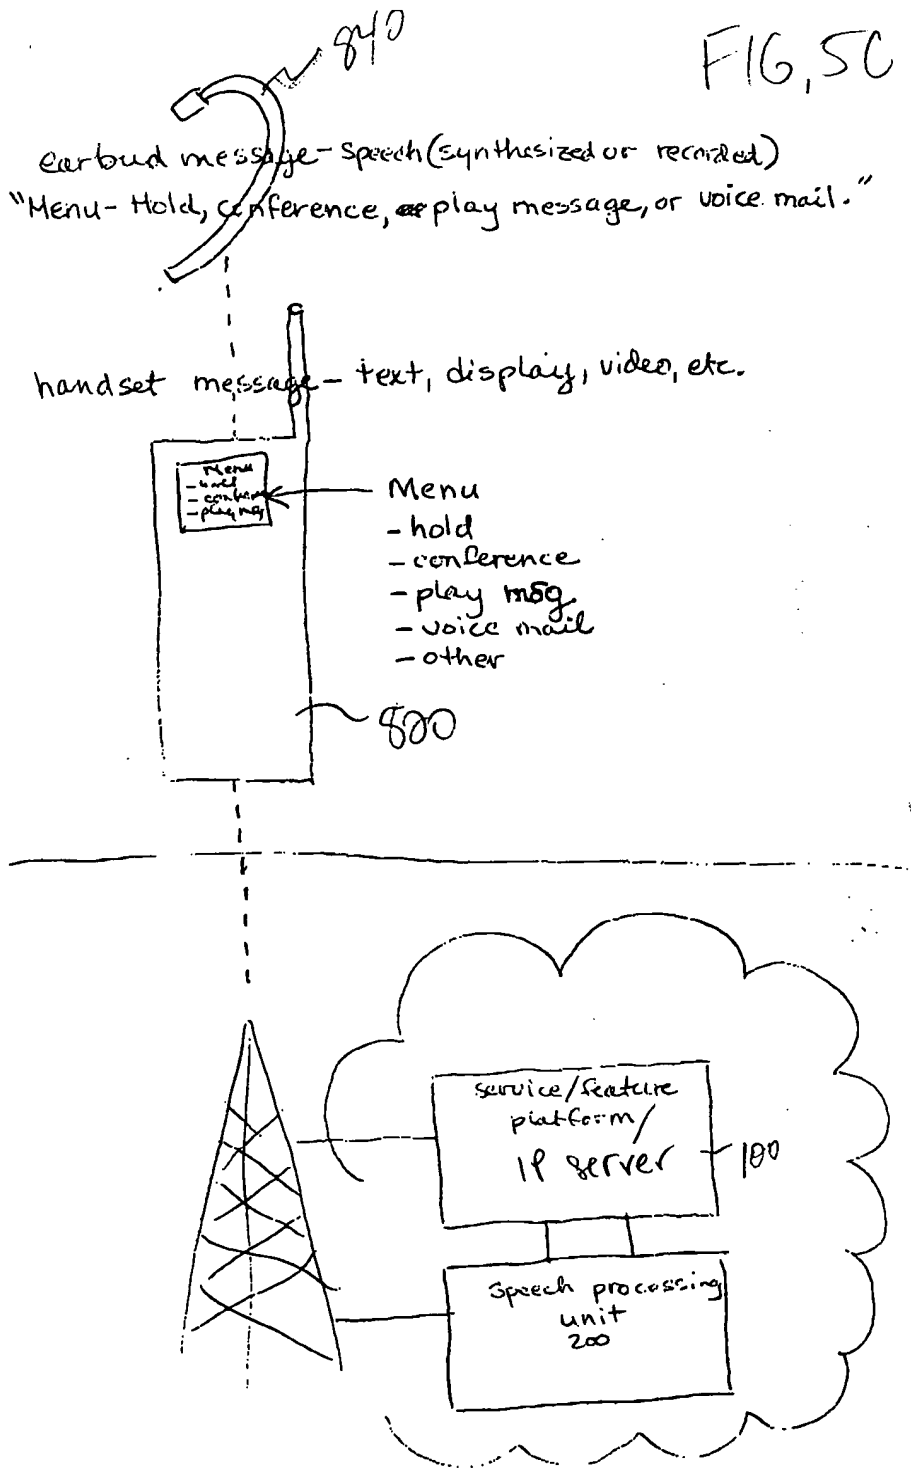 840
FIG, 5C
earbud message - speech (synthesized or recorded)
"Menu - Hold, conference, play message, or voice mail."
handset message - text, display, video, etc.
Menu
- hold
- conference
- play msg
Menu
- hold
- conference
- play msg.
- voice mail
- other
800
service/feature
platform/
IP server
100
speech processing
unit
200